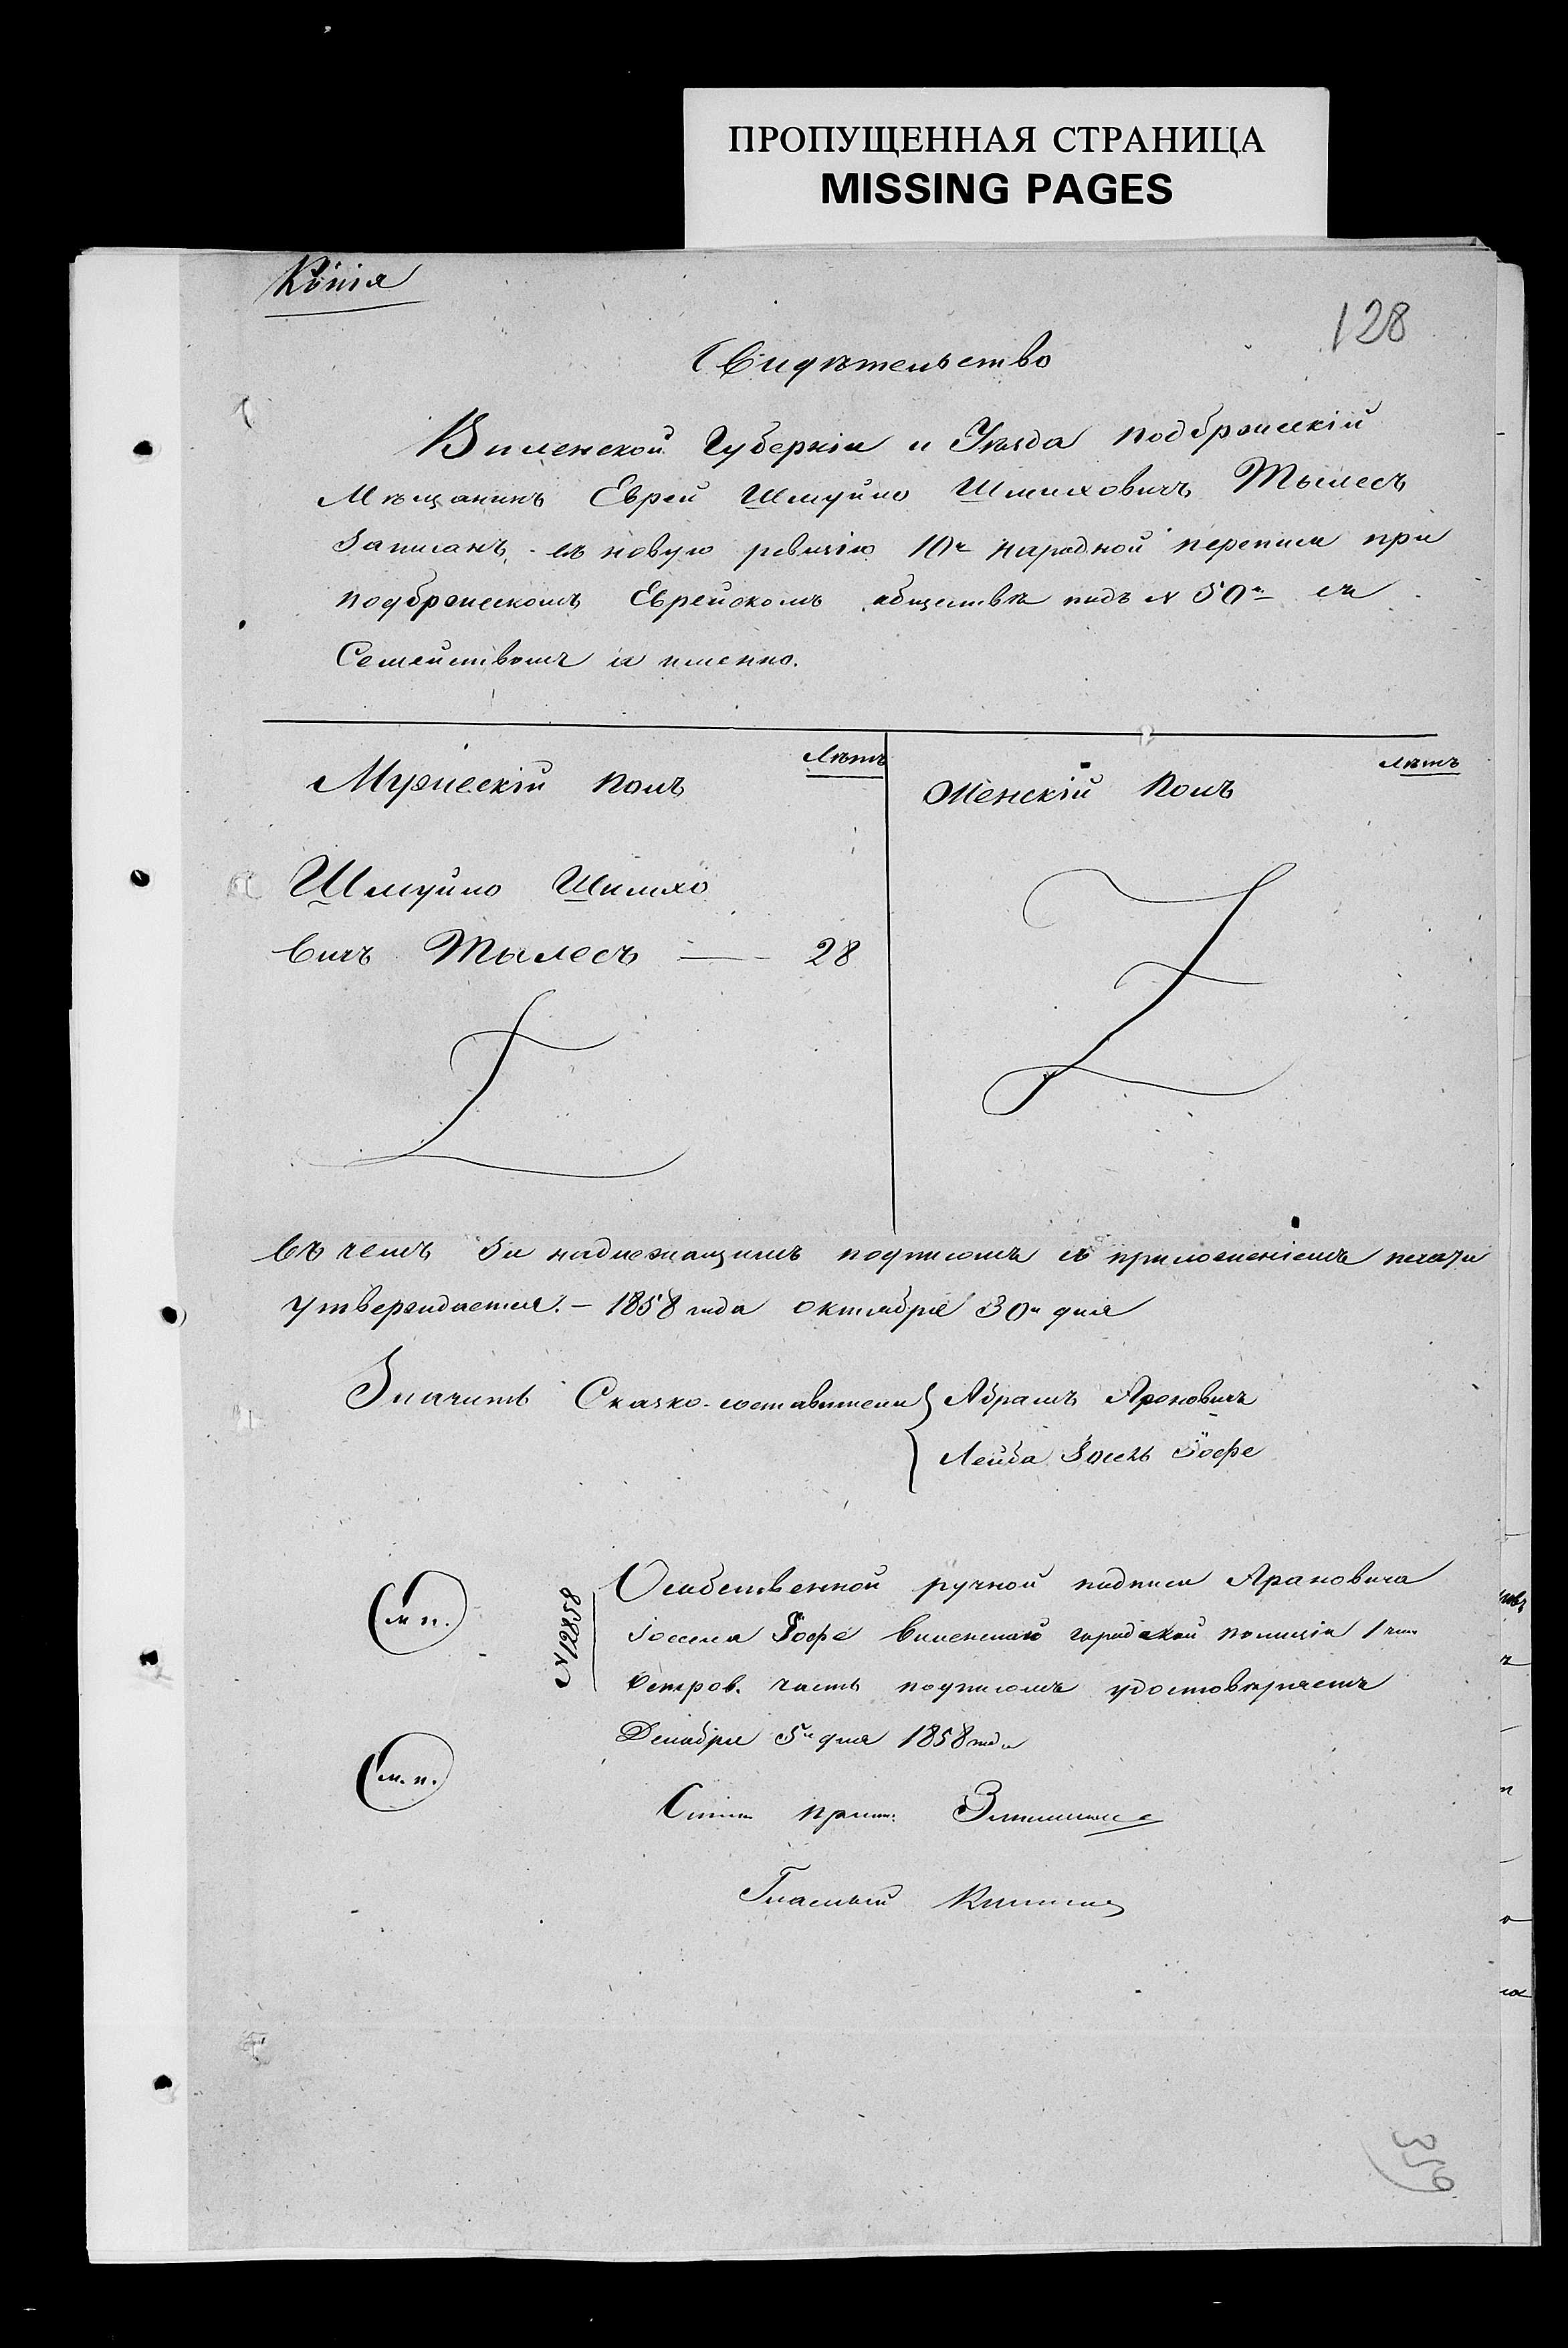 ПРОПУЩЕННАЯ СТРАНИЦА
MISSING PAGES
Копія
128
Свидѣтельство
Виленской Губерніи и Уѣзда Подбродскій
Мѣщанинъ Еврей Шмуйло Шлиховичъ Тылесъ
Записанъ въ новую ревизію 10й народной переписи при
подбродскомъ Еврейскомъ обществѣ подъ № 50м съ
Семействомъ и именно.
Мужескій Полъ Лѣтъ
Женскій Полъ Лѣтъ
Шмуйло Шлихо
вичъ Тылесъ — 28
въ чемъ за надлежащимъ подписомъ съ приложеніемъ печати
утверждается. – 1858 года октября 30 дня
Значитъ Сказко-составители Абрамъ Ароновичъ
Лейба Іосель Іофе
м. п.
№ 12858
О собственной ручной подписи Арановича
Іоселя Іофе виленской городской полиціи 1
часть подписомъ удостовѣряетъ
Декабря 5 дня 1858 года
м. п.
Гласный
356